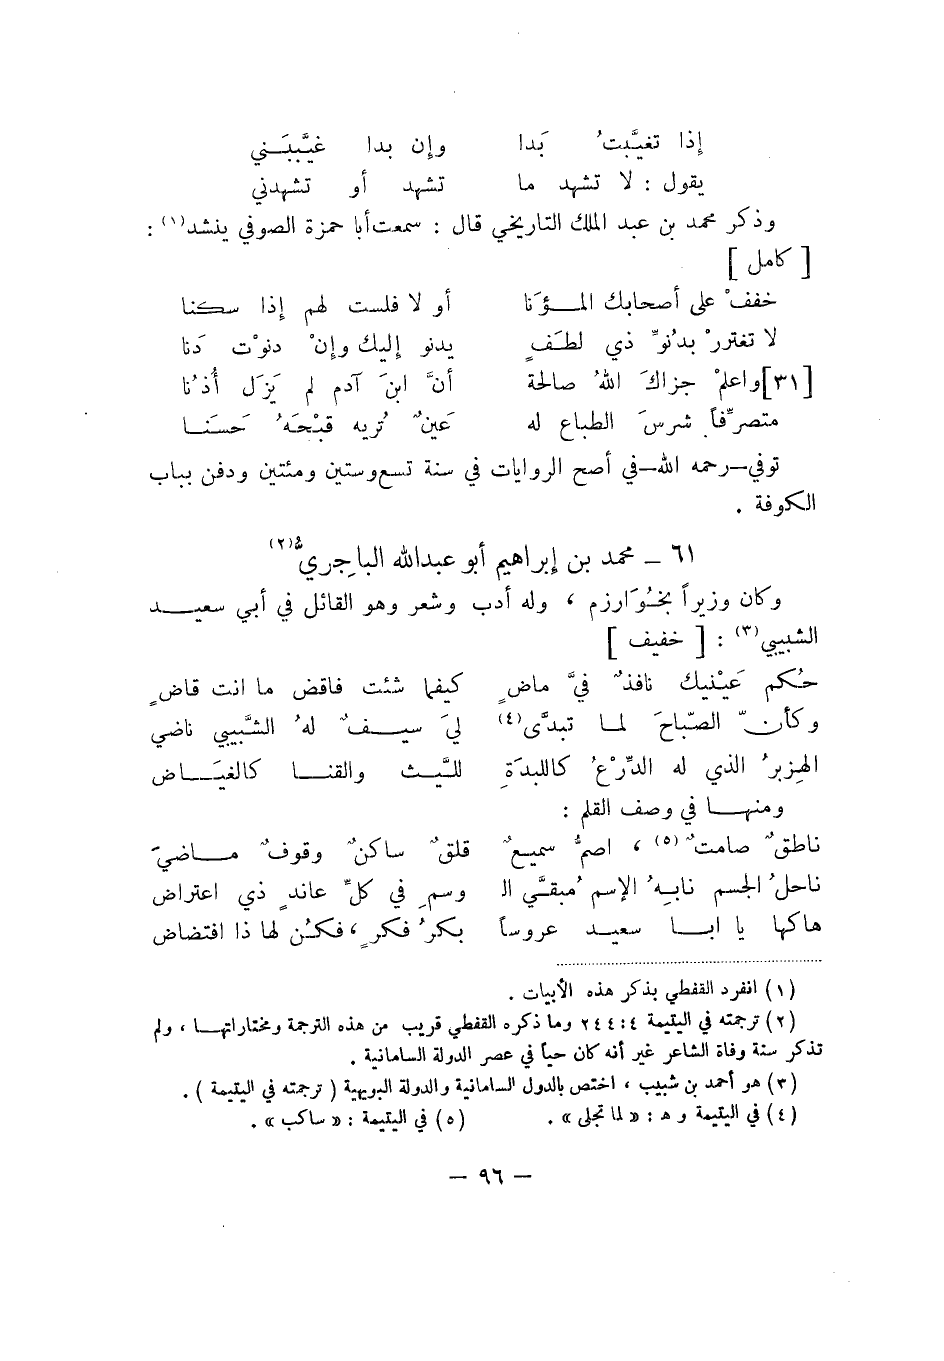 إذا تغيَّبتُ بَدا وإن بدا غيَّبَني
يقول : لا تشهد ما تشهد أو تشهدني
وذكر محمد بن عبد الملك التاريخي قال : سمعت أبا حمزة الصوفي ينشد(١) :
[ كامل ]
خففْ على أصحابك المؤَنا أو لا فلست لهم إذا سكنا
لا تغتررْ بدُنوِّ ذي لطَفٍ يدنو إليك وإنْ دنوْت دَنا
[٣١] واعلمْ جزاكَ اللهُ صالحة أنَّ ابنَ آدم لم يَزَل أُذُنا
متصرِّفاً شرسَ الطباع له عَينٌ تُريه قبْحَهُ حَسَنا
توفي–رحمه الله–في أصح الروايات في سنة تسع وستين ومئتين ودفن بباب
الكوفة .
٦١ – محمد بن إبراهيم أبو عبدالله الباجِري(٢)
وكان وزيراً بخُوَارزم ، وله أدب وشعر وهو القائل في أبي سعيد
الشبيبي(٣) : [ خفيف ]
حُكم عَيْنيك نافذٌ فيَّ ماضٍ كيفما شئت فاقض ما انت قاضٍ
وكأنّ الصّباحَ لما تبدَّى(٤) ليَ سيفٌ لهُ الشَّبيبي ناضي
الهِزبرُ الذي له الدِّرْعُ كاللبدَةِ للَّيث والقنا كالغيَاض
ومنها في وصف القلم :
ناطقٌ صامتٌ(٥) ، اصمُّ سميعٌ قلقٌ ساكنٌ وقوفٌ ماضيَ
ناحلُ الجسم نابِهُ الإسم مُبقَّى الـ وسمِ في كلِّ عاندٍ ذي اعتراض
هاكها يا ابا سعيد عروساً بكرُ فكرٍ ، فكُن لها ذا افتضاض
(١) انفرد القفطي بذكر هذه الأبيات .
(٢) ترجمته في اليتيمة ٤ : ٢٤٤ وما ذكره القفطي قريب من هذه الترجمة ومختاراتها ، ولم
تذكر سنة وفاة الشاعر غير أنه كان حياً في عصر الدولة السامانية .
(٣) هو أحمد بن شبيب ، اختص بالدول السامانية والدولة البويهية ( ترجمته في اليتيمة ) .
(٤) في اليتيمة و هـ : « لما تجلى » . (٥) في اليتيمة : « ساكب » .
– ٩٦ –